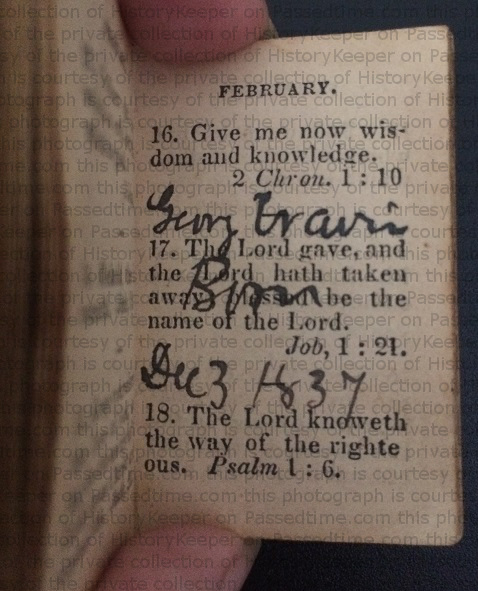 FEBRUARY.
16. Give me now wis-
dom and knowledge.
2 Chron. 1 : 10
Georg Travis
17. The Lord gave, and
the Lord hath taken
Born
away, blessed be the
name of the Lord.
Job, 1 : 21.
Dec 3 1837
18. The Lord knoweth
the way of the righte
ous. Psalm 1 : 6.
this photograph is courtesy of the private collection of HistoryKeeper on Passedtime.com